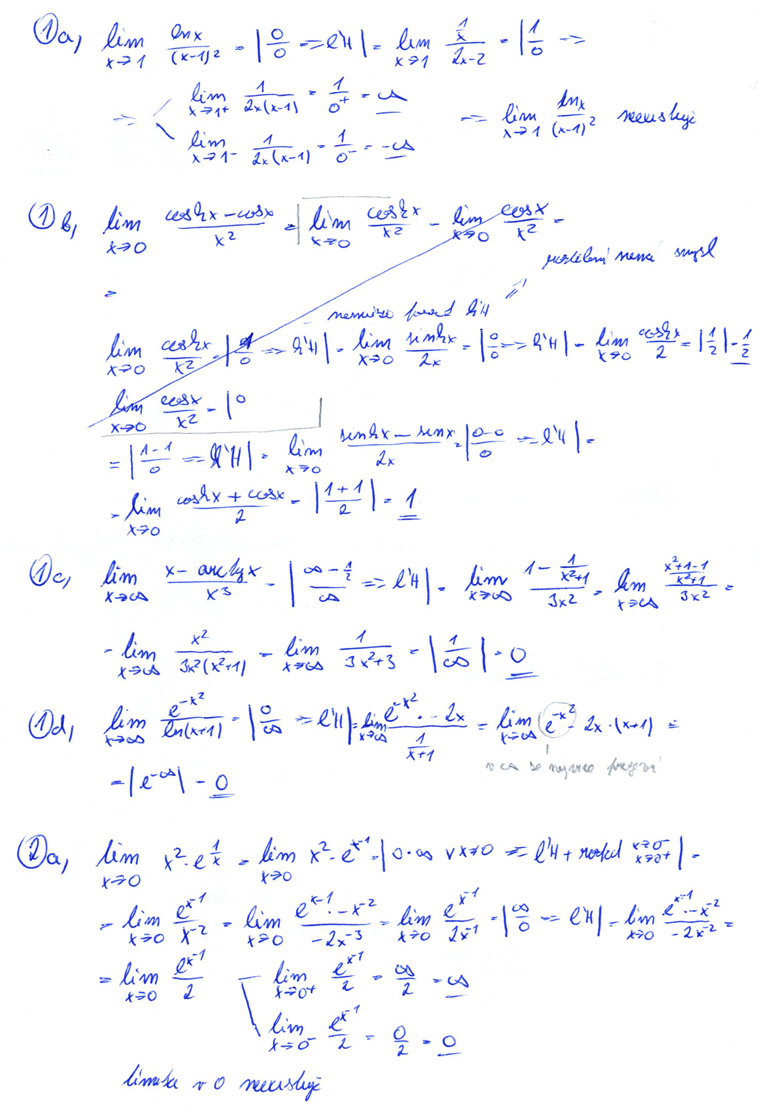 1a, lim x→1 ln x/(x-1)² = |0/0 ⇒ l'H| = lim x→1 (1/x)/(2x-2) = |1/0 ⇒
⇒ lim x→1+ 1/(2x(x-1)) = 1/0⁺ = ∞ ⇒ lim x→1 ln x/(x-1)² neexistuje
lim x→1- 1/(2x(x-1)) = 1/0⁻ = -∞
1b, lim x→0 (cosh x - cos x)/x² = lim x→0 cosh x/x² - lim x→0 cos x/x² =
rozdělení nemá smysl
=
nemůžu použít l'H
lim x→0 cosh x/x² = |1/0 ⇒ l'H| = lim x→0 sinh x/2x = |0/0 ⇒ l'H| = lim x→0 cosh x/2 = |1/2| = 1/2
lim x→0 cos x/x² = |0
= |(1-1)/0 ⇒ l'H| = lim x→0 (sinh x - sin x)/2x = |(0-0)/0 ⇒ l'H| =
= lim x→0 (cosh x + cos x)/2 = |(1+1)/2| = 1
1c, lim x→∞ (x - arctg x)/x³ = |(∞ - 1/2)/∞ ⇒ l'H| = lim x→∞ (1 - 1/(x²+1))/3x² = lim x→∞ ((x²+1-1)/(x²+1))/3x² =
= lim x→∞ x²/(3x²(x²+1)) = lim x→∞ 1/(3x²+3) = |1/∞| = 0
1d, lim x→∞ e^(-x²)/ln(x+1) = |0/∞ ⇒ l'H| = lim x→∞ (e^(-x²) · -2x)/(1/(x+1)) = lim x→∞ e^(-x²) · 2x · (x+1) =
v ∞ se nejvíce projeví
= |e^(-∞)| = 0
2a, lim x→0 x² · e^(1/x) = lim x→0 x² · e^(x⁻¹) = |0·∞ v x→0 ⇒ l'H + rozkl x→0⁻ x→0⁺| =
= lim x→0 e^(x⁻¹)/x⁻² = lim x→0 (e^(x⁻¹) · -x⁻²)/(-2x⁻³) = lim x→0 e^(x⁻¹)/2x⁻¹ = |∞/0 ⇒ l'H| = lim x→0 (e^(x⁻¹) · -x⁻²)/(-2x⁻²) =
= lim x→0 e^(x⁻¹)/2 lim x→0+ e^(x⁻¹)/2 = ∞/2 = ∞
lim x→0⁻ e^(x⁻¹)/2 = 0/2 = 0
limita v 0 neexistuje